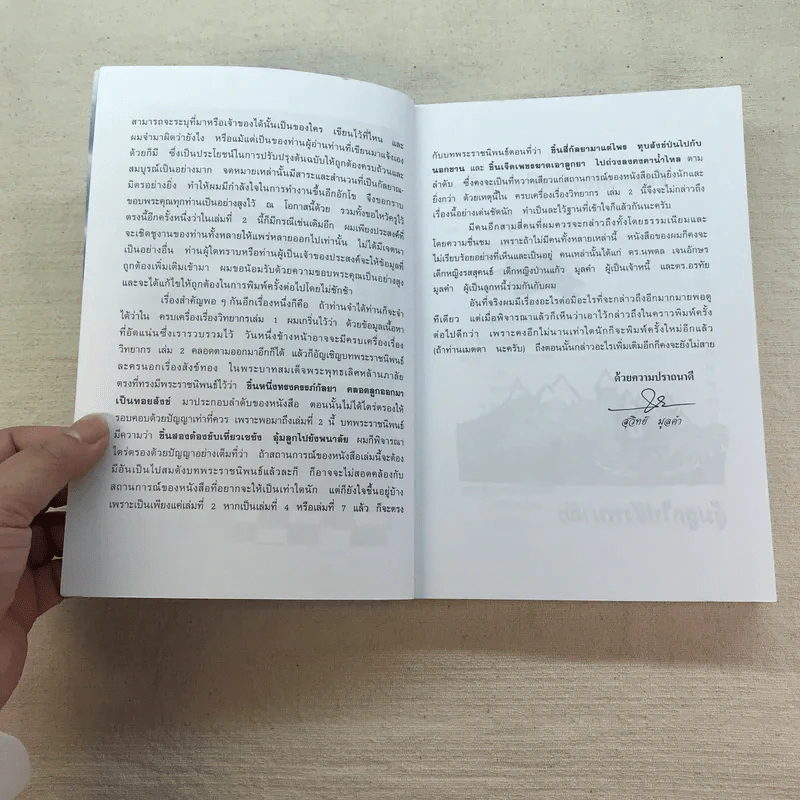 สามารถจะระบุที่มาหรือเจ้าของได้นั้นเป็นของใคร เขียนไว้ที่ไหน และ
ผมจำมาผิดว่ายังไง หรือแม้แต่เป็นของท่านผู้อ่านท่านที่เขียนมาแจ้งเอง
ด้วยก็มี ซึ่งเป็นประโยชน์ในการปรับปรุงต้นฉบับให้ถูกต้องครบถ้วนและ
สมบูรณ์เป็นอย่างมาก จดหมายเหล่านั้นมีสาระและสำนวนที่เป็นกัลยาณ-
มิตรอย่างยิ่ง ทำให้ผมมีกำลังใจในการทำงานขึ้นอีกอักโข จึงขอกราบ
ขอบพระคุณทุกท่านเป็นอย่างสูงไว้ ณ โอกาสนี้ด้วย รวมทั้งขอไหว้ครูไว้
ตรงนี้อีกครั้งหนึ่งว่าในเล่มที่ 2 นี้ก็มีกรณีเช่นเดิมอีก ผมเพียงประสงค์ที่
จะเชิดชูงานของท่านทั้งหลายให้แพร่หลายออกไปเท่านั้น ไม่ได้มีเจตนา
เป็นอย่างอื่น ท่านผู้ใดทราบหรือท่านผู้เป็นเจ้าของประสงค์จะให้ข้อมูลที่
ถูกต้องเพิ่มเติมเข้ามา ผมขอน้อมรับด้วยความขอบพระคุณเป็นอย่างสูง
และจะได้แก้ไขให้ถูกต้องในการพิมพ์ครั้งต่อไปโดยไม่ชักช้า
เรื่องสำคัญพอ ๆ กันอีกเรื่องหนึ่งก็คือ ถ้าท่านจำได้ท่านก็จะจำ
ได้ว่าใน ครบเครื่องเรื่องวิทยากรเล่ม 1 ผมเกริ่นไว้ว่า ด้วยข้อมูลเนื้อหา
ที่อัดแน่นซึ่งเรารวบรวมไว้ วันหนึ่งข้างหน้าอาจจะมีครบเครื่องเรื่อง
วิทยากร เล่ม 2 คลอดตามออกมาอีกก็ได้ แล้วก็อัญเชิญบทพระราชนิพนธ์
ละครนอกเรื่องสังข์ทอง ในพระบาทสมเด็จพระพุทธเลิศหล้านภาลัย
ตรงที่ทรงมีพระราชนิพนธ์ไว้ว่า ขึ้นหนึ่งทรงครรภ์กัลยา คลอดลูกออกมา
เป็นหอยสังข์ มาประกอบลำดับของหนังสือ ตอนนั้นไม่ได้ไตร่ตรองให้
รอบคอบด้วยปัญญาเท่าที่ควร เพราะพอมาถึงเล่มที่ 2 นี้ บทพระราชนิพนธ์
มีความว่า ขึ้นสองต้องขับเที่ยวเซซัง อุ้มลูกไปยังพนาลัย ผมก็พิจารณา
ไตร่ตรองด้วยปัญญาอย่างเดิมที่ว่า ถ้าสถานการณ์ของหนังสือเล่มนี้จะต้อง
มีอันเป็นไปสมดังบทพระราชนิพนธ์แล้วละก็ ก็อาจจะไม่สอดคล้องกับ
สถานการณ์ของหนังสือที่อยากจะให้เป็นเท่าใดนัก แต่ก็ยังใจชื้นอยู่บ้าง
เพราะเป็นเพียงแค่เล่มที่ 2 หากเป็นเล่มที่ 4 หรือเล่มที่ 7 แล้ว ก็จะตรง
กับบทพระราชนิพนธ์ตอนที่ว่า ขึ้นสี่กัลยามาแต่ไพร ทุบสังข์ป่นไปกับ
นอกชาน และ ขึ้นเจ็ดเพชฌฆาตเอาลูกยา ไปถ่วงลงคงคาน้ำไหล ตาม
ลำดับ ซึ่งคงจะเป็นที่หวาดเสียวแก่สถานการณ์ของหนังสือเป็นยิ่งนักและ
ยิ่งกว่า ด้วยเหตุนี้ใน ครบเครื่องเรื่องวิทยากร เล่ม 2 นี้จึงจะไม่กล่าวถึง
เรื่องนี้อย่างเด่นชัดนัก ทำเป็นละไว้ฐานที่เข้าใจก็แล้วกันนะครับ
มีคนอีกสามสี่คนที่ผมควรจะกล่าวถึงทั้งโดยธรรมเนียมและ
โดยความชื่นชม เพราะถ้าไม่มีคนทั้งหลายเหล่านี้ หนังสือของผมก็คงจะ
ไม่เรียบร้อยอย่างที่เห็นและเป็นอยู่ คนเหล่านั้นได้แก่ ดร.นพดล เจนอักษร
เด็กหญิงรสสุคนธ์ เด็กหญิงบ้านแก้ว มูลคำ ผู้เป็นเจ้าหนี้ และดร.อรทัย
มูลคำ ผู้เป็นลูกหนี้ร่วมกันกับผม
อันที่จริงผมมีเรื่องอะไรต่อมิอะไรที่จะกล่าวถึงอีกมากมายพอดู
ทีเดียว แต่เมื่อพิจารณาแล้วก็เห็นว่าเอาไว้กล่าวถึงในคราวพิมพ์ครั้ง
ต่อไปดีกว่า เพราะคงอีกไม่นานเท่าใดนักก็จะพิมพ์ครั้งใหม่อีกแล้ว
(ถ้าท่านเมตตา นะครับ) ถึงตอนนั้นกล่าวอะไรเพิ่มเติมอีกก็คงจะยังไม่สาย
ด้วยความปรารถนาดี
สุวิทย์ มูลคำ